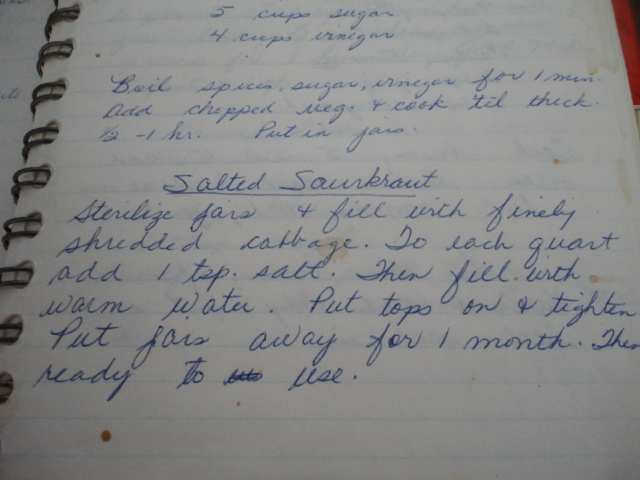 5 cups sugar
4 cups vinegar
Boil spices, sugar, vinegar for 1 min.
Add chopped veg. & cook 'til thick.
1/2 - 1 hr. Put in jars.
Salted Saurkraut
Sterilize jars & fill with finely
shredded cabbage. To each quart
add 1 tsp. salt. Then fill with
warm water. Put tops on & tighten
Put jars away for 1 month. Then
ready to use.